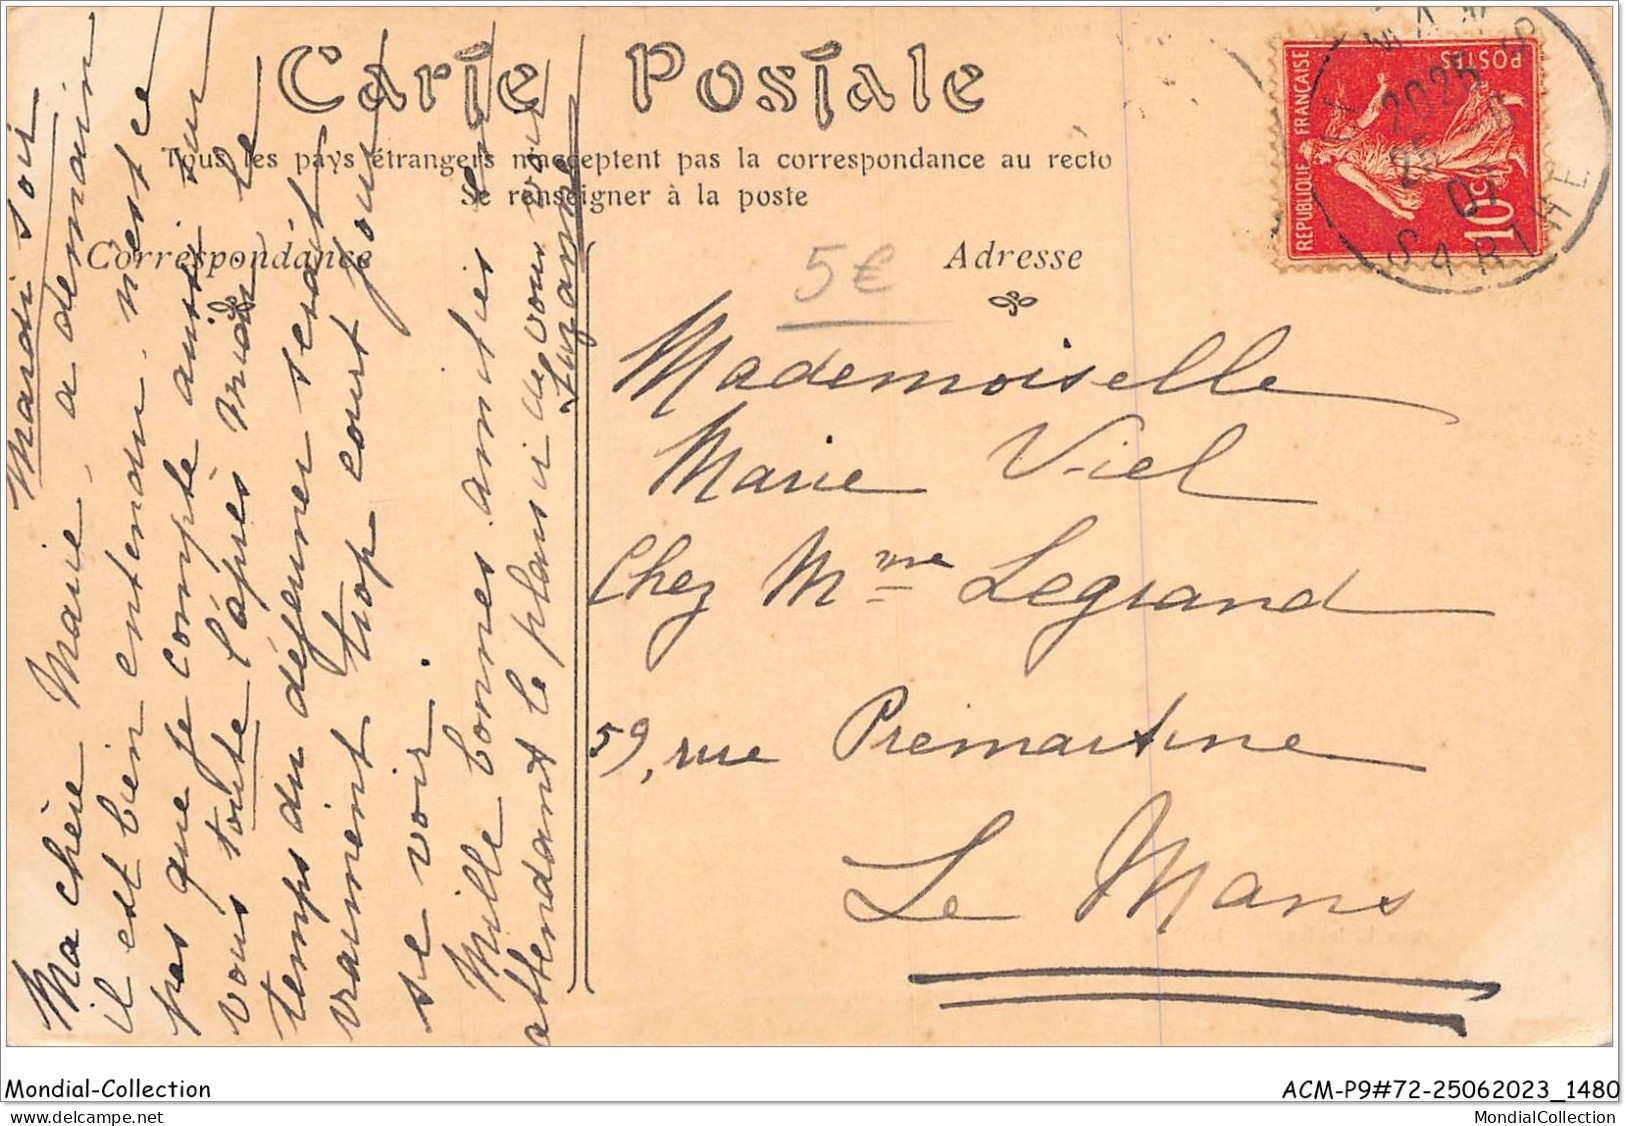 Carte Postale
Tous les pays étrangers n'acceptent pas la correspondance au recto
Se renseigner à la poste
Correspondance
Adresse
5€
REPUBLIQUE FRANÇAISE
POSTES
10c
LE MANS
2025
07
SARTHE
Mardi soir
Ma chère Marie, a demain
il est bien entendu, n'est ce
pas que je compte aussi sur
vous toute l'après midi le
temps du déjeuner serait
vraiment trop court pour
se voir.
Mille bonnes amitiés en
attendant le plaisir de vous voir
Suzanne
Mademoiselle
Marie Viel
Chez Mme Legrand
59, rue Premartine
Le Mans
Mondial-Collection
ACM-P9#72-25062023_1480
delcampe.net
MondialCollection